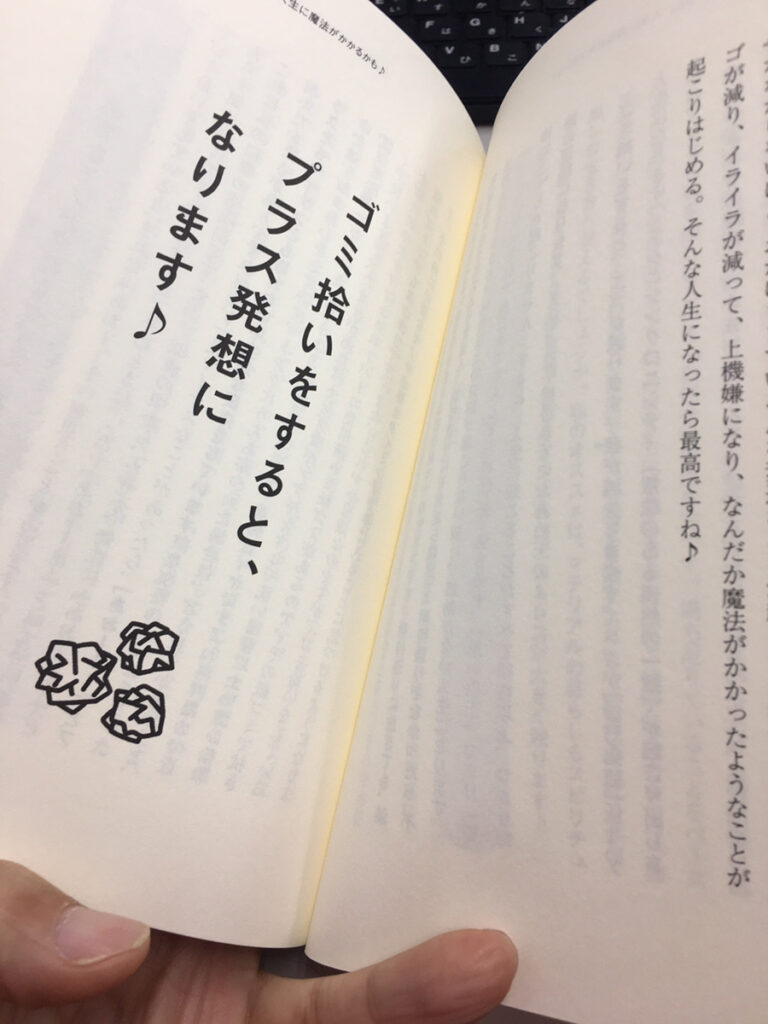 ゴが減り、イライラが減って、上機嫌になり、なんだか魔法がかかったようなことが
起こりはじめる。そんな人生になったら最高ですね♪
人生に魔法がかかるかも♪
ゴミ拾いをすると、
プラス発想に
なります♪
F
G
H
J
V
B